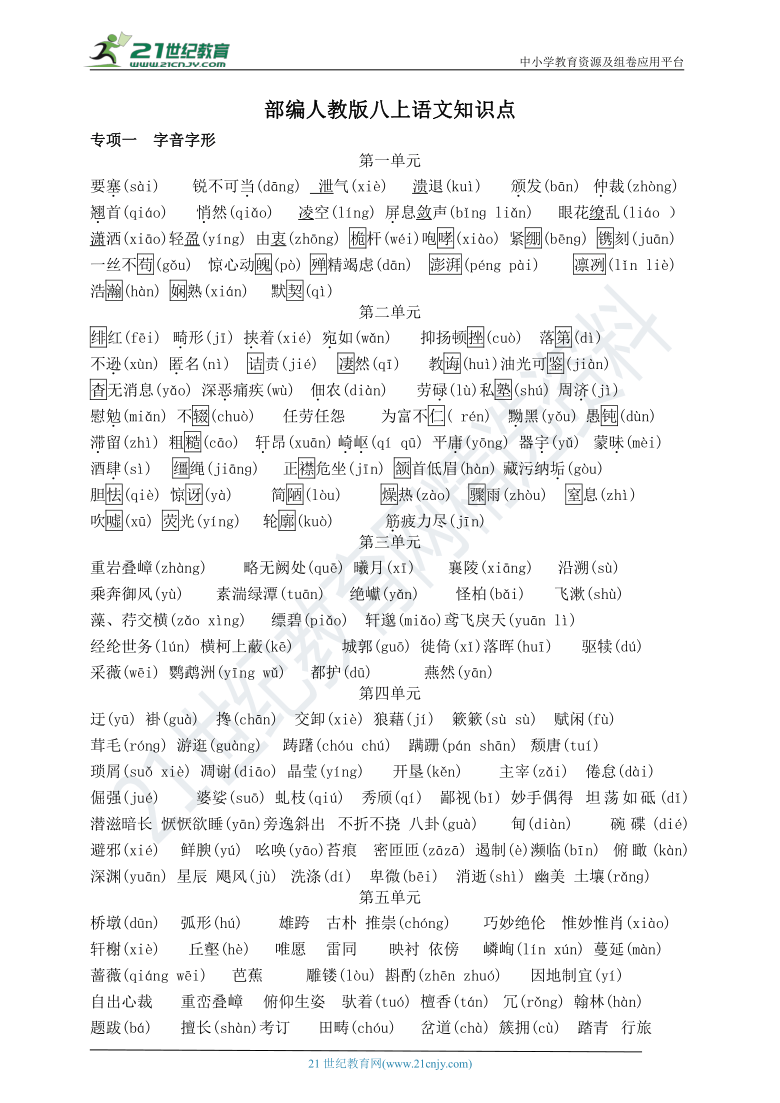 21世纪教育
www.21cnjy.com
中小学教育资源及组卷应用平台
部编人教版八上语文知识点
专项一 字音字形
第一单元
要塞(sài) 锐不可当(dāng) 泄气(xiè) 溃退(kuì) 颁发(bān) 仲裁(zhòng)
翘首(qiáo) 悄然(qiǎo) 凌空(líng) 屏息敛声(bǐng liǎn) 眼花缭乱(liáo )
潇洒(xiāo)轻盈(yíng) 由衷(zhōng) 桅杆(wéi)咆哮(xiào) 紧绷(bēng) 镌刻(juān)
一丝不苟(gǒu) 惊心动魄(pò) 殚精竭虑(dān) 澎湃(péng pài) 凛冽(lǐn liè)
浩瀚(hàn) 娴熟(xián) 默契(qì)
第二单元
绯红(fēi) 畸形(jī) 挟着(xié) 宛如(wǎn) 抑扬顿挫(cuò) 落第(dì)
不逊(xùn) 匿名(nì) 诘责(jié) 凄然(qī) 教诲(huì)油光可鉴(jiàn)
杳无消息(yǎo) 深恶痛疾(wù) 佃农(diàn) 劳碌(lù)私塾(shú) 周济(jì)
慰勉(miǎn) 不辍(chuò) 任劳任怨 为富不仁( rén) 黝黑(yǒu) 愚钝(dùn)
滞留(zhì) 粗糙(cāo) 轩昂(xuān) 崎岖(qí qū) 平庸(yōng) 器宇(yǔ) 蒙昧(mèi)
酒肆(sì) 缰绳(jiāng) 正襟危坐(jīn) 颔首低眉(hàn) 藏污纳垢(gòu)
胆怯(qiè) 惊讶(yà) 简陋(lòu) 燥热(zào) 骤雨(zhòu) 窒息(zhì)
吹嘘(xū) 荧光(yíng) 轮廓(kuò) 筋疲力尽(jīn)
第三单元
重岩叠嶂(zhàng) 略无阙处(quē) 曦月(xī) 襄陵(xiāng) 沿溯(sù)
乘奔御风(yù) 素湍绿潭(tuān) 绝巘(yǎn) 怪柏(bǎi) 飞漱(shù)
藻、荇交横(zǎo xìng) 缥碧(piǎo) 轩邈(miǎo)鸢飞戾天(yuān lì)
经纶世务(lún) 横柯上蔽(kē) 城郭(guō) 徙倚(xǐ)落晖(huī) 驱犊(dú)
采薇(wēi) 鹦鹉洲(yīng wǔ) 都护(dū) 燕然(yān)
第四单元
迂(yū) 褂(guà) 搀(chān) 交卸(xiè) 狼藉(jí) 簌簌(sù sù) 赋闲(fù)
茸毛(róng) 游逛(guàng) 踌躇(chóu chú) 蹒跚(pán shān) 颓唐(tuí)
琐屑(suǒ xiè) 凋谢(diāo) 晶莹(yíng) 开垦(kěn) 主宰(zǎi) 倦怠(dài)
倔强(jué) 婆娑(suō) 虬枝(qiú) 秀颀(qí) 鄙视(bǐ) 妙手偶得 坦荡如砥(dǐ)
潜滋暗长 恹恹欲睡(yān)旁逸斜出 不折不挠 八卦(guà) 甸(diàn) 碗碟(dié)
避邪(xié) 鲜腴(yú) 吆唤(yāo)苔痕 密匝匝(zāzā) 遏制(è)濒临(bīn) 俯瞰(kàn)
深渊(yuān) 星辰 飓风(jù) 洗涤(dí) 卑微(bēi) 消逝(shì) 幽美 土壤(rǎng)
第五单元
桥墩(dūn) 弧形(hú) 雄跨 古朴 推崇(chóng) 巧妙绝伦 惟妙惟肖(xiào)
轩榭(xiè) 丘壑(hè) 唯愿 雷同 映衬 依傍 嶙峋(lín xún) 蔓延(màn)
蔷薇(qiáng wēi) 芭蕉 雕镂(lòu) 斟酌(zhēn zhuó) 因地制宜(yí)
自出心裁 重峦叠嶂 俯仰生姿 驮着(tuó) 檀香(tán) 冗(rǒng) 翰林(hàn)
题跋(bá) 擅长(shàn)考订 田畴(chóu) 岔道(chà) 簇拥(cù) 踏青 行旅
21 世纪教育网(www.21cnjy.com)
21世纪教育网精选资料